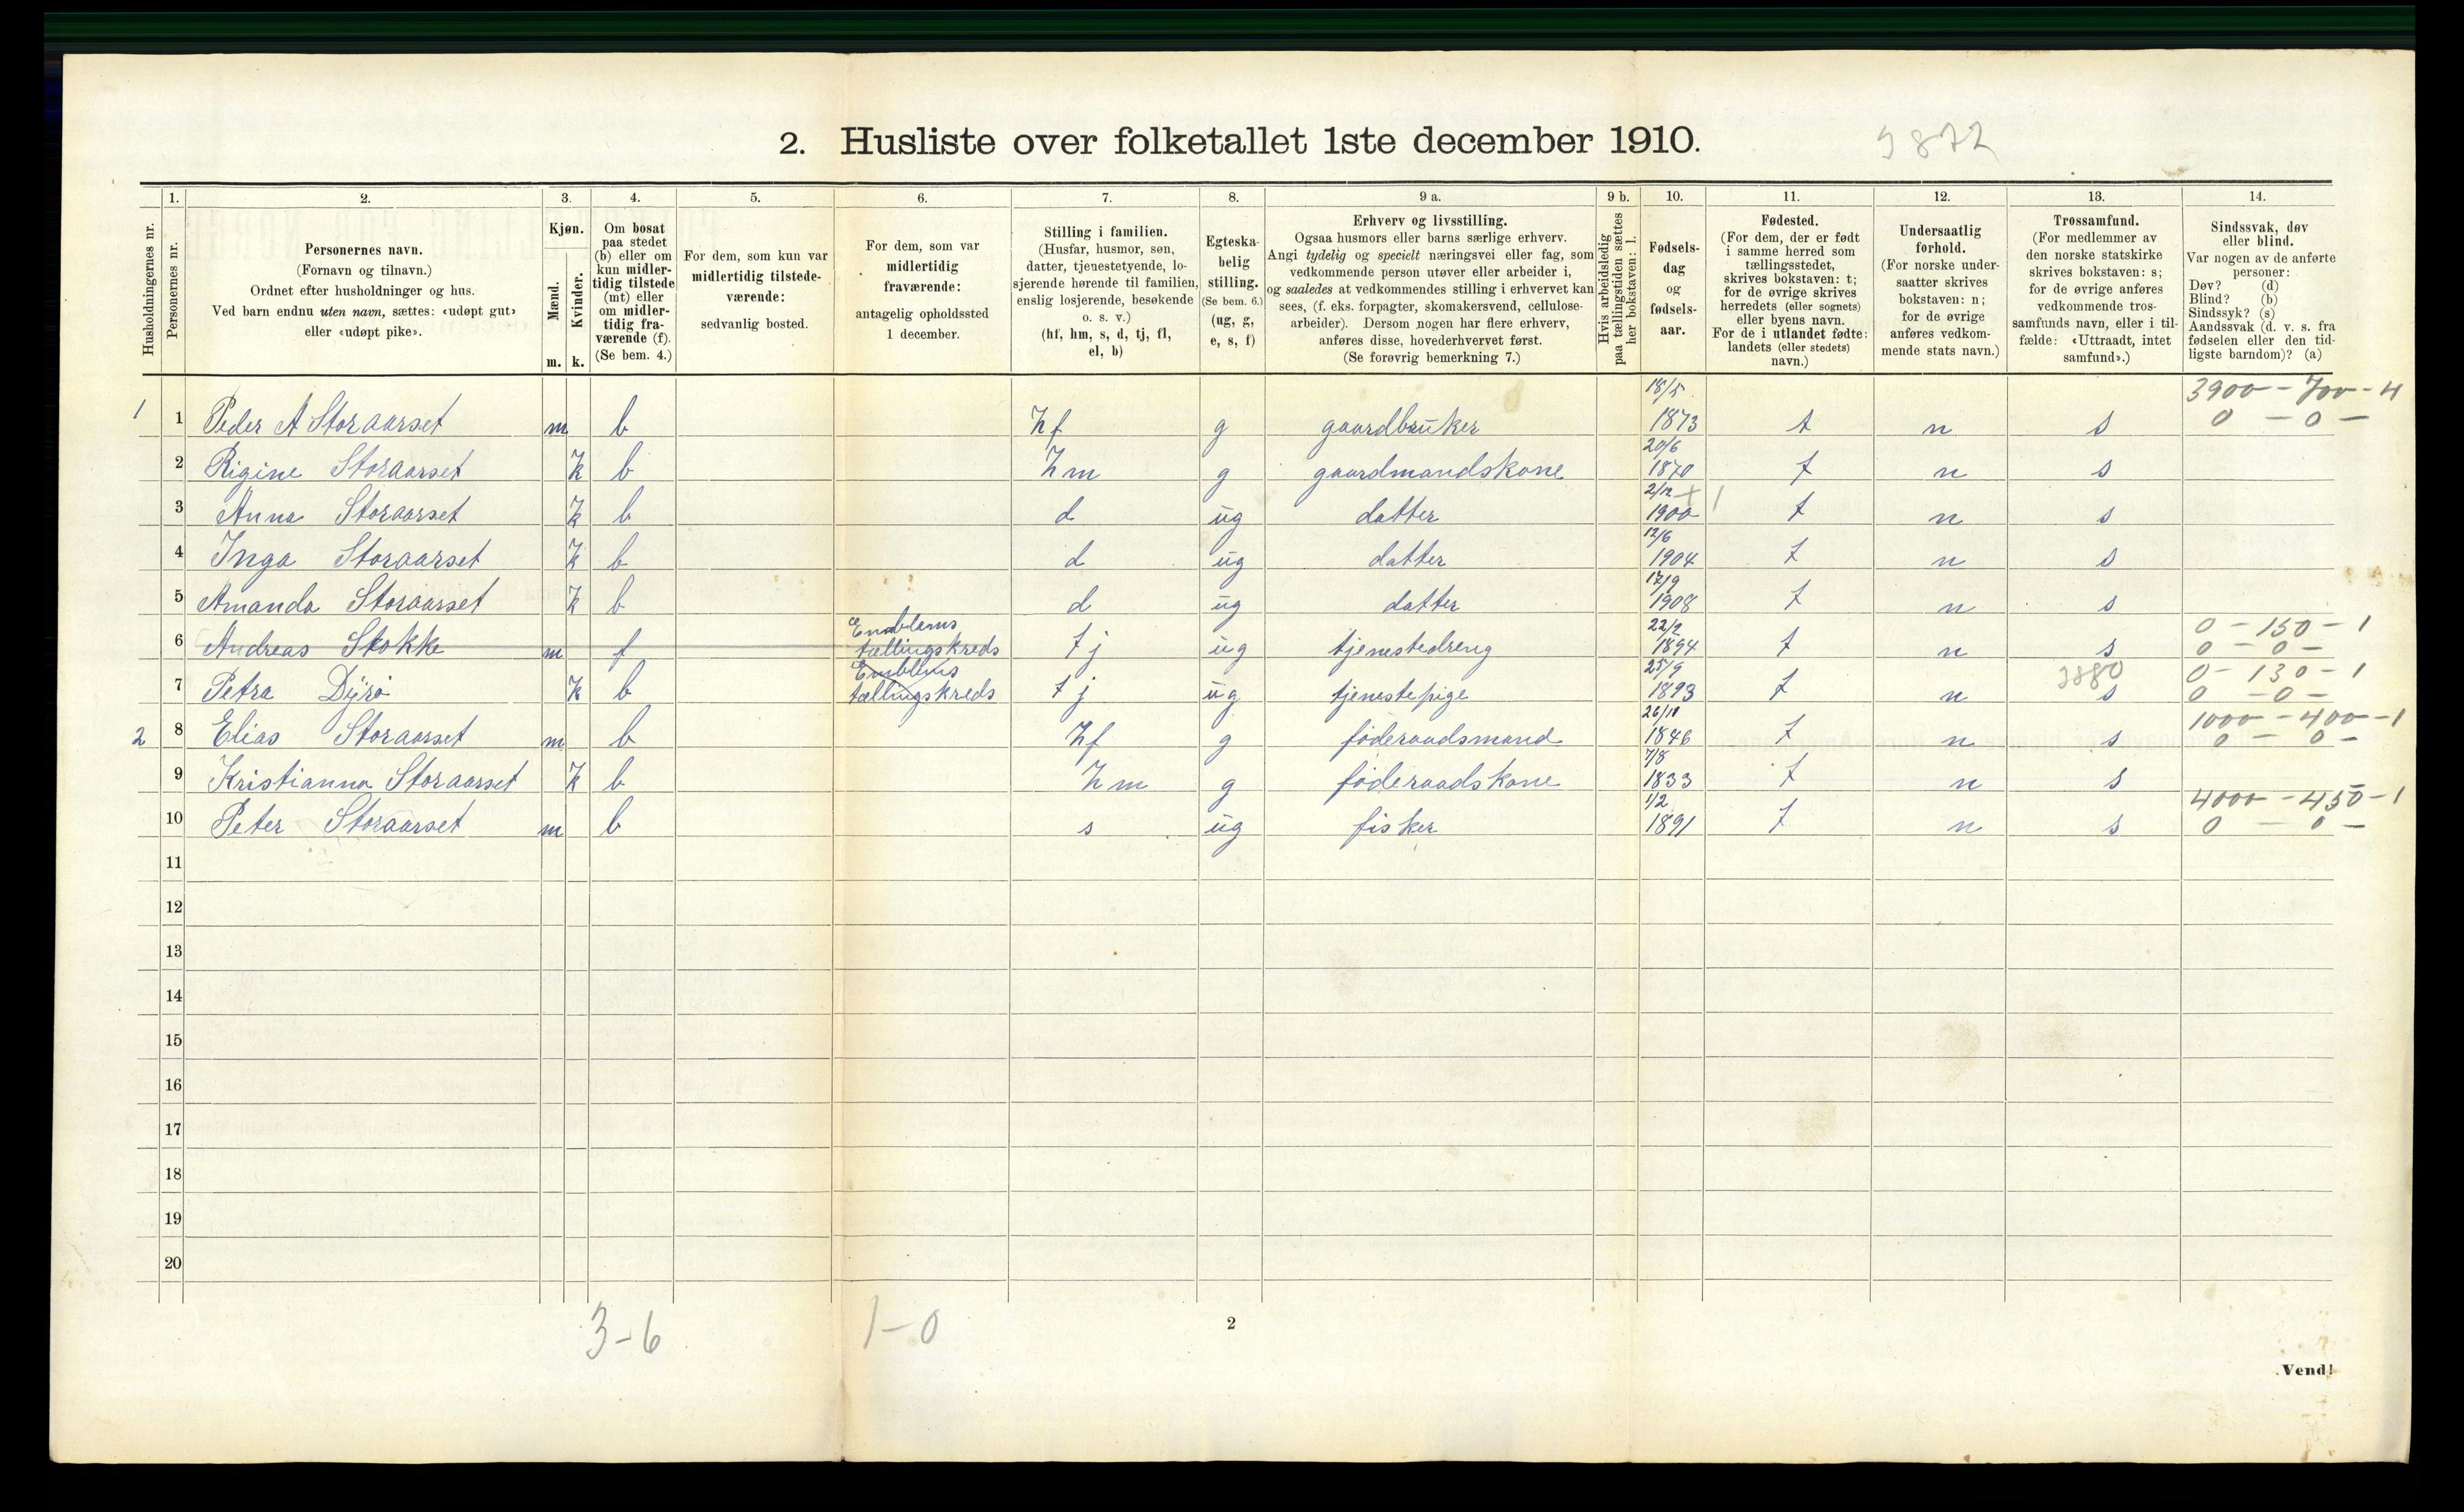 2. Husliste over folketallet 1ste december 1910.
9872
Husholdningernes nr.
1.
Personernes nr.
2.
Personernes navn.
(Fornavn og tilnavn.)
Ordnet efter husholdninger og hus.
Ved barn endnu uten navn, sættes: «udøpt gut»
eller «udøpt pike».
3.
Kjøn.
Mænd.
Kvinder.
m. k.
4.
Om bosat
paa stedet
(b) eller om
kun midler-
tidig tilstede
(mt) eller
om midler-
tidig fra-
værende (f).
(Se bem. 4.)
5.
For dem, som kun var
midlertidig tilstede-
værende:
sedvanlig bosted.
6.
For dem, som var
midlertidig
fraværende:
antagelig opholdssted
1 december.
7.
Stilling i familien.
(Husfar, husmor, søn,
datter, tjenestetyende, lo-
sjerende hørende til familien,
enslig losjerende, besøkende
o. s. v.)
(hf, hm, s, d, tj, fl,
el, b)
8.
Egteska-
belig
stilling.
(Se bem. 6.)
(ug, g,
e, s, f)
9 a.
Erhverv og livsstilling.
Ogsaa husmors eller barns særlige erhverv.
Angi tydelig og specielt næringsvei eller fag, som
vedkommende person utøver eller arbeider i,
og saaledes at vedkommendes stilling i erhvervet kan
sees, (f. eks. forpagter, skomakersvend, cellulose-
arbeider). Dersom nogen har flere erhverv,
anføres disse, hovederhvervet først.
(Se forøvrig bemerkning 7.)
9 b.
Hvis arbeidsledig
paa tællingstiden sættes
her bokstaven: l.
10.
Fødsels-
dag
og
fødsels-
aar.
11.
Fødested.
(For dem, der er født
i samme herred som
tællingsstedet,
skrives bokstaven: t;
for de øvrige skrives
herredets (eller sognets)
eller byens navn.
For de i utlandet fødte:
landets (eller stedets)
navn.)
12.
Undersaatlig
forhold.
(For norske under-
saatter skrives
bokstaven: n;
for de øvrige
anføres vedkom-
mende stats navn.)
13.
Trossamfund.
(For medlemmer av
den norske statskirke
skrives bokstaven: s;
for de øvrige anføres
vedkommende tros-
samfunds navn, eller i til-
fælde: «Uttraadt, intet
samfund».)
14.
Sindssvak, døv
eller blind.
Var nogen av de anførte
personer:
Døv? (d)
Blind? (b)
Sindssyk? (s)
Aandssvak (d. v. s. fra
fødselen eller den tid-
ligste barndom)? (a)
18/5 3900 - 700 - 4
1 1 Peder A Storaarset m b hf g gaardbruker 1873 t n s 0 - 0 -
20/6
2 Rigine Storaarset k b hm g gaardmandskone 1870 t n s
2/12 + 1
3 Anna Storaarset k b d ug datter 1900 t n s
12/6
4 Inga Storaarset k b d ug datter 1904 t n s
17/9
5 Amanda Storaarset k b d ug datter 1908 t n s
Emblems 22/2 0 - 150 - 1
6 Andreas Stokke m f tællingskreds tj ug tjenestedreng 1894 t n s 0 - 0 -
Emblems 25/9 3880 0 - 130 - 1
7 Petra Dyrø k b tællingskreds tj ug tjenestepige 1893 t n s 0 - 0 -
26/11 1000 - 400 - 1
2 8 Elias Storaarset m b hf g føderaadsmand 1846 t n s 0 - 0 -
7/8
9 Kristianna Storaarset k b hm g føderaadskone 1833 t n s
1/2 4000 - 450 - 1
10 Peter Storaarset m b s ug fisker 1891 t n s 0 - 0 -
11
12
13
14
15
16
17
18
19
20
3-6 1-0
2
Vend!